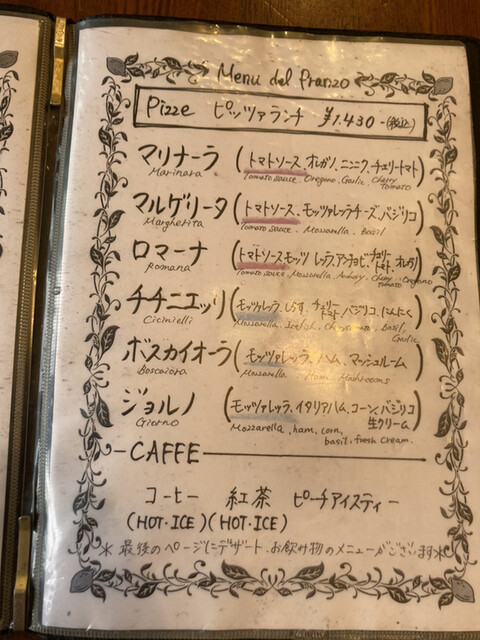 Menu del Pranzo
Pizze ピッツァランチ ¥1,430-(税込)
マリナーラ (トマトソース、オレガノ、ニンニク、チェリートマト)
Marinara Tomato sauce, Oregano, Garlic, Cherry Tomato
マルゲリータ (トマトソース、モッツァレッラチーズ、バジリコ)
Margherita Tomato sauce, Mozzarella, Basil
ロマーナ (トマトソース モッツァレッラ、アンチョビ、チェリートマト、オレガノ)
Romana Tomato sauce, Mozzarella, Cherry tomato, Oregano
チチニエッリ (モッツァレッラ、しらす、チェリートマト、バジリコ、にんにく)
Cicinielli Mozzarella, Basil, Garlic
ボスカイオーラ (モッツァレッラ、ハム、マッシュルーム)
Mozzarella Ham Mushrooms
ジョルノ (モッツァレッラ、イタリアハム、コーン、バジリコ
生クリーム)
Giorno Mozzarella, ham, corn,
basil, fresh cream.
CAFFE
コーヒー 紅茶 ピーチアイスティー
(HOT・ICE)(HOT・ICE)
※最後のページにデザート・お飲み物のメニューがございます※